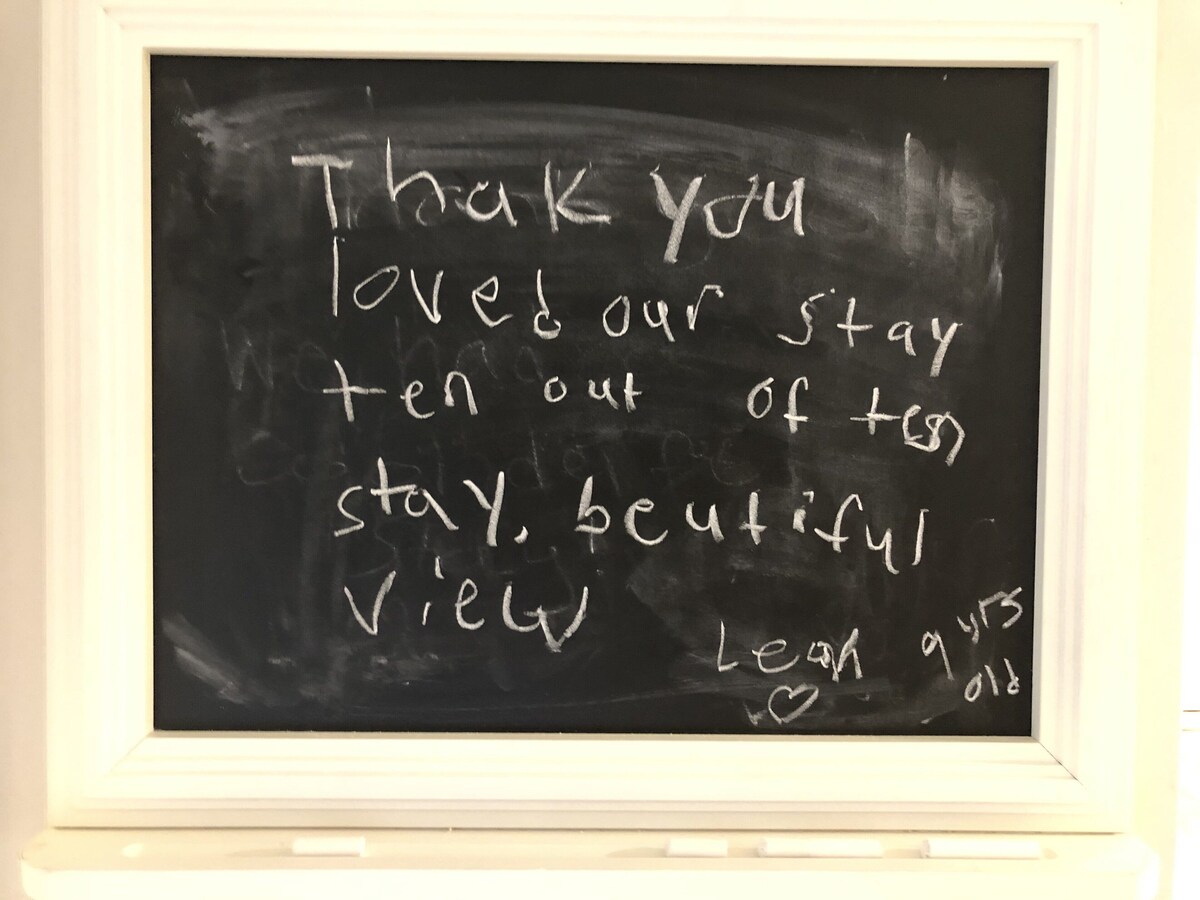 Thak you
loved our stay
ten out of ten
stay. beutiful
view
Leah 9 yrs
old